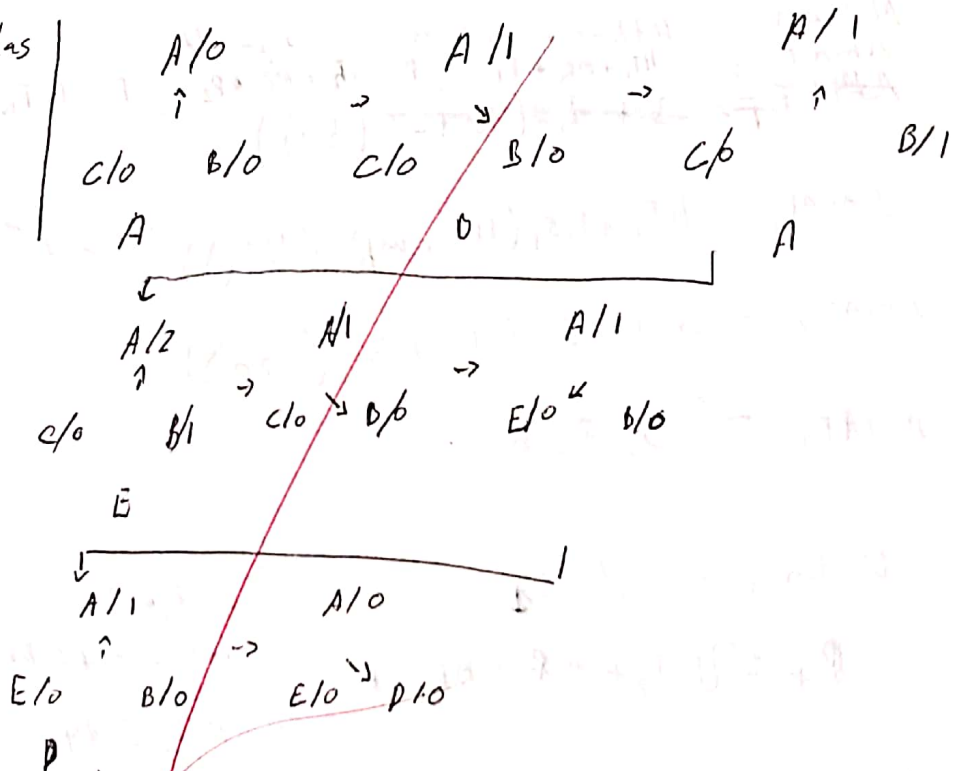 A/0 A/1 A/1
↑ → ↘ → ↑
C/0 B/0 C/0 B/0 C/0 B/1
A A
A/2 A/1 A/1
↑ → ↘ → ↙
C/0 B/1 C/0 D/0 E/0 B/0
E
A/1 A/0
↑ → ↘
E/0 B/0 E/0 D/0
D